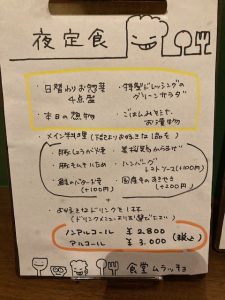 夜定食
・日替わりお惣菜
4点盛
・特製ドレッシングの
グリーンサラダ
・本日の
・ごはんみそ汁
お漬物
・メイン料理 (下記よりお好きな1品を)
・豚しょうが焼き
・豚キムチ炒め
(+100円)
・若鶏のからあげ
・ハンバーグ
トマトソース(+100円)
(+200円)
+
・お好きなドリンクを1杯
(ドリンクメニューよりお選びください)
ノンアルコール ¥2,800
アルコール ¥3,000 (税込)
食堂ムラッチョ